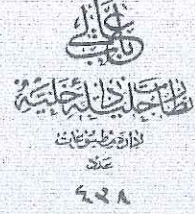 باب عالی
نظارت جلیلهٔ داخلیه
اداره مطبوعات
عدد
٤٣٨